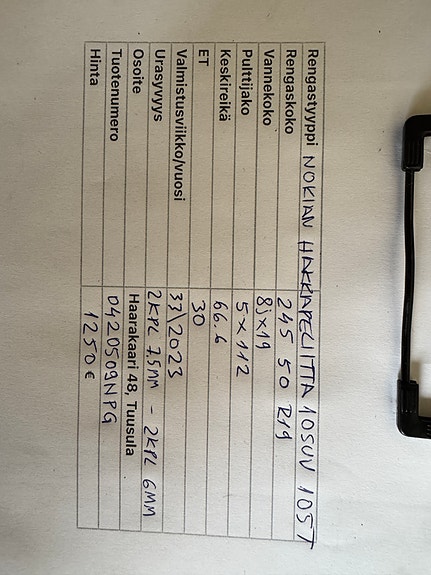 Rengastyyppi NOKIAN HAKKAPELIITTA 10SUV 105T
Rengaskoko 245 50 R19
Vannekoko 8jx19
Pulttijako 5x112
Keskireikä 66.6
ET 30
Valmistusviikko/vuosi 33\2023
Urasyvyys 2KPL 7,5MM - 2KPL 6MM
Osoite Haarakaari 48, Tuusula
Tuotenumero 0420509NPG
Hinta 1250 €